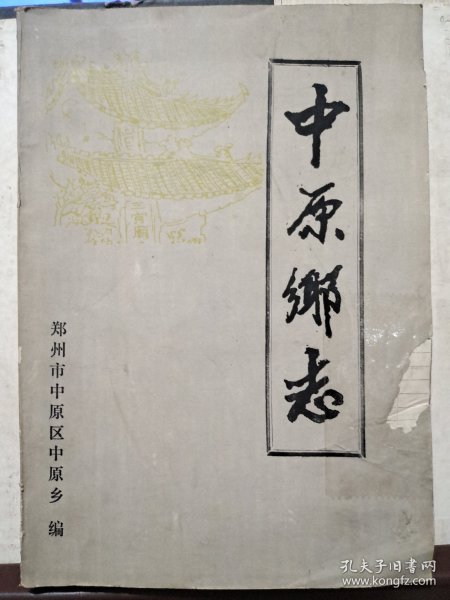 中原鄉志
三官廟
郑州市中原区中原乡 编
孔夫子旧书网
www.kongfz.com